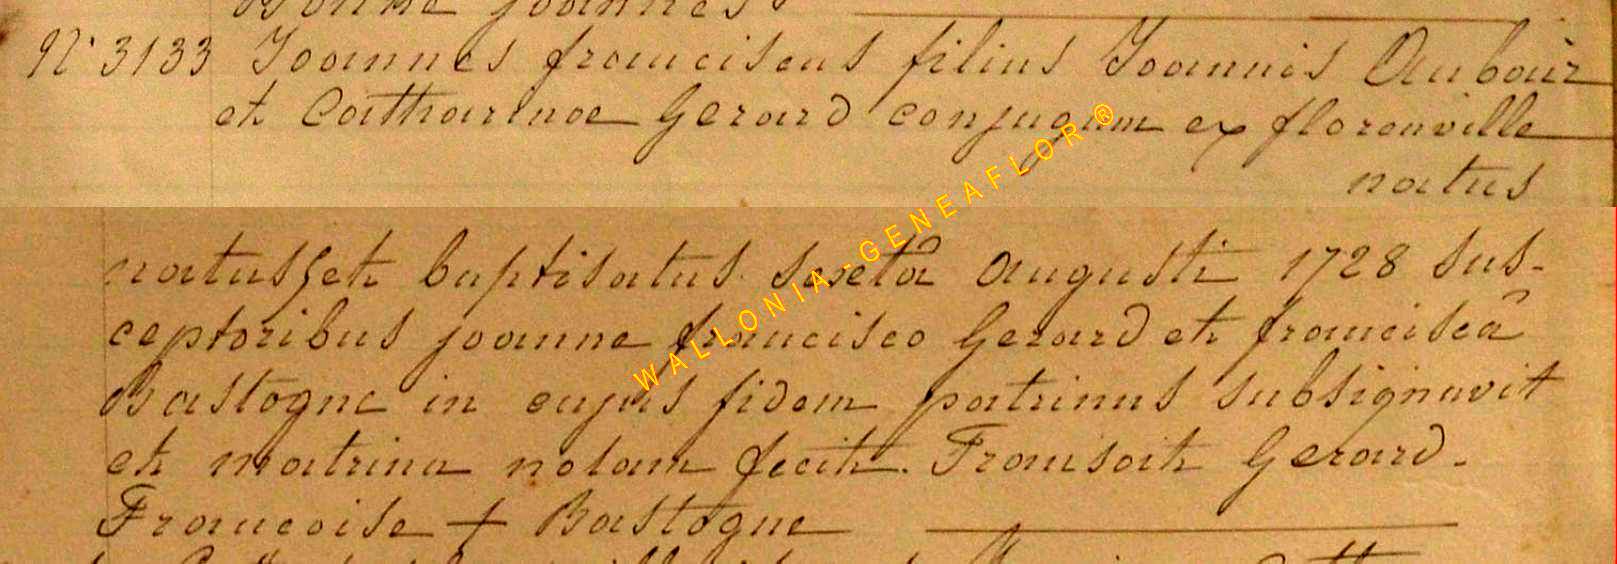 Bonne joannes.
N° 3133 Joannes franciscus filius Joannis Aubair
et Catharinae Gerard conjugum ex florenville
natus
natus et baptisatus sextâ augusti 1728 sus-
ceptoribus joanne francisco Gerard et franciscâ
Bastogne in cujus fidem patrinus subsignavit
et matrina notam fecit. Fransoit Gerard.
Francoise + Bastogne
WALLONIA-GENEAFLOR®